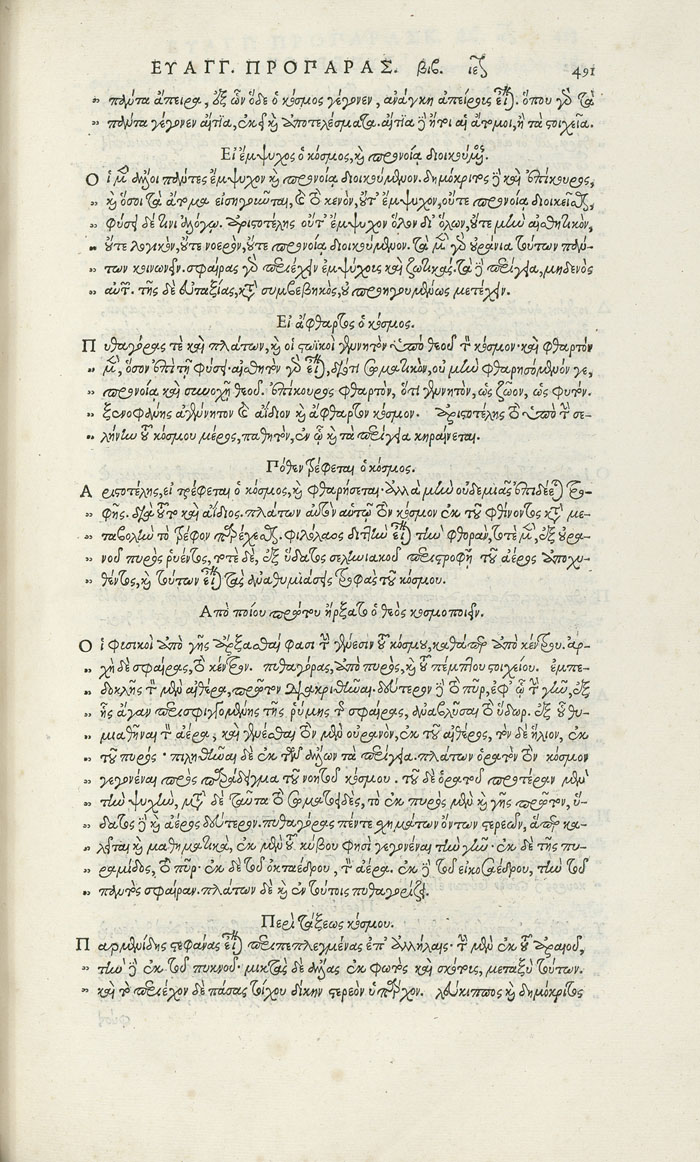 ΕΥΑΓΓ. ΠΡΟΠΑΡΑΣ. βιβ. ιε 491
πάντα ἄπειρα, ἐξ ὧν ὅδε ὁ κόσμος γέγονεν, ἀνάγκη ἀπείρους εἶναι. ὅπου γὰρ τὰ
πάντα γέγονεν αἴτια, ἐκεῖ καὶ ἀποτελέσματα. αἴτια δὲ ἤτοι αἱ ἄτομοι, ἢ τὰ στοιχεῖα.
Εἰ ἔμψυχος ὁ κόσμος, καὶ προνοίᾳ διοικούμενος.
Οἱ μὲν ἄλλοι πάντες ἔμψυχον καὶ προνοίᾳ διοικούμενον. δημόκριτος δὲ καὶ ἐπίκουρος,
καὶ ὅσοι τὰ ἄτομα εἰσηγοῦνται, καὶ τὸ κενὸν, οὔτ' ἔμψυχον, οὔτε προνοίᾳ διοικεῖσθαι,
φύσει δέ τινι ἀλόγῳ. ἀριστοτέλης οὔτ' ἔμψυχον ὅλον δι' ὅλων, οὔτε μὴν αἰσθητικὸν,
οὔτε λογικὸν, οὔτε νοερὸν, οὔτε προνοίᾳ διοικούμενον. τὰ μὲν γὰρ οὐράνια τούτων πάν-
των κοινωνεῖν. σφαίρας γὰρ περιέχειν ἐμψύχους καὶ ζωτικάς. τὰ δὲ περίγεια, μηδενὸς
αὐτῶν. τῆς δὲ εὐταξίας, κατὰ συμβεβηκὸς, οὐ προηγουμένως μετέχειν.
Εἰ ἄφθαρτος ὁ κόσμος.
Πυθαγόρας τὲ καὶ πλάτων, καὶ οἱ στωϊκοὶ γεννητὸν ὑπὸ θεοῦ τὸν κόσμον· καὶ φθαρτὸν
μὲν, ὅσον ἐπὶ τῇ φύσει· αἰσθητὸν γὰρ εἶναι, διότι σωματικὸν, οὐ μὴν φθαρησόμενόν γε,
προνοίᾳ καὶ συνοχῇ θεοῦ. ἐπίκουρος φθαρτὸν, ὅτι γεννητὸν, ὡς ζῶον, ὡς φυτόν.
ξενοφάνης ἀγέννητον καὶ ἀΐδιον καὶ ἄφθαρτον κόσμον. ἀριστοτέλης τὸ ὑπὸ τὴν σε-
λήνην τοῦ κόσμου μέρος, παθητὸν, ἐν ᾧ καὶ τὰ περίγεια κηραίνεται.
Πόθεν τρέφεται ὁ κόσμος.
Αριστοτέλης, εἰ τρέφεται ὁ κόσμος, καὶ φθαρήσεται· ἀλλὰ μὴν οὐδεμιᾶς ἐπιδέεται τρο-
φῆς. διὰ τοῦτο καὶ ἀΐδιος. πλάτων αὐτὸν αὑτῷ τὸν κόσμον ἐκ τοῦ φθίνοντος κατὰ με-
ταβολὴν τὸ τρέφον παρέχεσθαι. φιλόλαος διττὴν εἶναι τὴν φθορὰν, τοτὲ μὲν, ἐξ οὐρα-
νοῦ πυρὸς ῥυέντος, τοτὲ δὲ, ἐξ ὕδατος σεληνιακοῦ περιστροφῇ τοῦ ἀέρος ἀποχυ-
θέντος, καὶ τούτων εἶναι τὰς ἀναθυμιάσεις τροφὰς τοῦ κόσμου.
Απὸ ποίου πρώτου ἤρξατο ὁ θεὸς κοσμοποιεῖν.
Οἱ φυσικοὶ ἀπὸ γῆς ἄρξασθαί φασι τὴν γένεσιν τοῦ κόσμου, καθάπερ ἀπὸ κέντρου. ἀρ-
χὴ δὲ σφαίρας, τὸ κέντρον. πυθαγόρας, ἀπὸ πυρὸς, καὶ τοῦ πέμπτου στοιχείου. ἐμπε-
δοκλῆς τὸν μὲν αἰθέρα, πρῶτον διακριθῆναι. δεύτερον δὲ τὸ πῦρ, ἐφ' ᾧ τὴν γῆν, ἐξ
ἧς ἄγαν περισφιγγομένης τῆς ῥύμης τῆς σφαίρας, ἀναβλῦσαι τὸ ὕδωρ. ἐξ οὗ θυ-
μιαθῆναι τὸν ἀέρα, καὶ γενέσθαι τὸν μὲν οὐρανὸν, ἐκ τοῦ αἰθέρος, τὸν δὲ ἥλιον, ἐκ
τοῦ πυρός· πιληθῆναι δὲ ἐκ τῶν ἄλλων τὰ περίγεια. πλάτων ὁρατὸν τὸν κόσμον
γεγονέναι πρὸς παράδειγμα τοῦ νοητοῦ κόσμου. τοῦ δὲ ὁρατοῦ προτέραν μὲν
τὴν ψυχὴν, μετὰ δὲ ταῦτα τὸ σωματοειδὲς, τὸ ἐκ πυρὸς μὲν καὶ γῆς πρῶτον, ὕ-
δατος δὲ καὶ ἀέρος δεύτερον. πυθαγόρας πέντε σχημάτων ὄντων στερεῶν, ἅπερ κα-
λεῖται καὶ μαθηματικὰ, ἐκ μὲν τοῦ κύβου φησὶ γεγονέναι τὴν γῆν· ἐκ δὲ τῆς πυ-
ραμίδος, τὸ πῦρ· ἐκ δὲ τοῦ ὀκταέδρου, τὸν ἀέρα. ἐκ δὲ τοῦ εἰκοσαέδρου, τὴν τοῦ
παντὸς σφαῖραν. πλάτων δὲ καὶ ἐν τούτοις πυθαγορίζει.
Περὶ τάξεως κόσμου.
Παρμενίδης στεφάνας εἶναι περιπεπλεγμένας ἐπ' ἀλλήλαις· τὴν μὲν ἐκ τοῦ ἀραιοῦ,
τὴν δὲ ἐκ τοῦ πυκνοῦ· μικτὰς δὲ ἄλλας ἐκ φωτὸς καὶ σκότους, μεταξὺ τούτων.
καὶ τὸ περιέχον δὲ πάσας τοίχου δίκην στερεὸν ὑπάρχον. λεύκιππος καὶ δημόκριτος